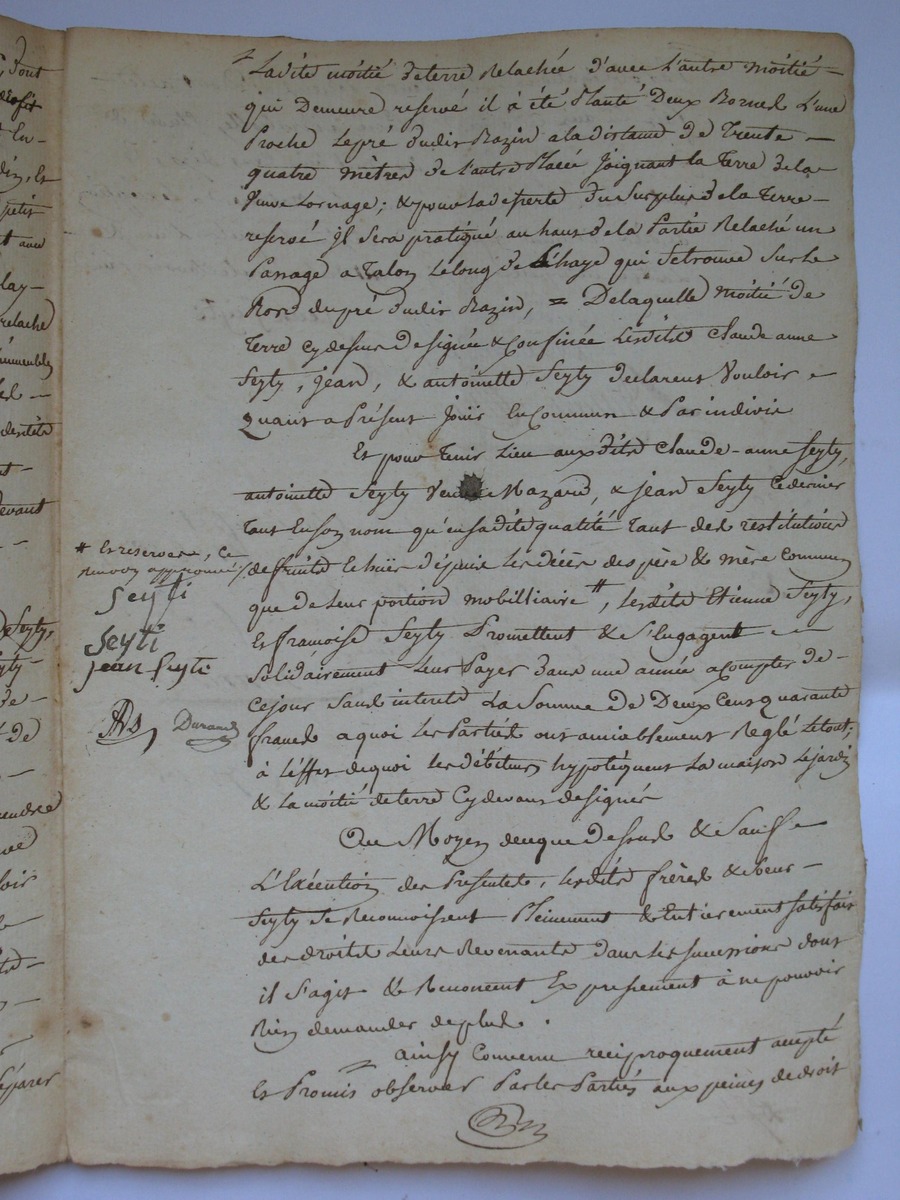 Ladite moitié de terre Relachée d'avec L'autre moitié
qui Demeure reservé il à été Planté Deux Bornes L'une
Proche Le pré dudit Razin a la distance de Trente
quatre mètres de l'autre Placée Joignant la Terre de la
Veuve Lornage ; & pour la deserte du Surplus de la Terre
reservé Il Sera pratiqué au haut de la Partie Relaché un
Passage a Talon Le long de L'haye qui Setrouve Sur le
Bord du pré dudit Razin, = De laquelle moitié de
Terre cy dessus designée & Confinée Lesdits Claude anne
Seyty, Jean, & antoinette Seyty declarent Vouloir
Quant a Présent Jouir En Commun & Par indivis
Et pour Tenir Lieu aux dits Claude-anne Seyty,
antoinette Seyty Mazard, & Jean Seyty Ce dernier
Tant En son nom qu'en sa dite qualité Tant des restitutions
de fruits Echus depuis Les décès des père & mère Communs
que de Leur portion mobilliaire #, Lesdits Etienne Seyty,
Et francoise Seyty Promettent & S'Engagent
Solidairement Leur Payer dans une année a Compter de
Ce jour Sans interets La Somme de Deux Cent quarante
francs a quoi Les Parties ont amiablement Reglé Le tout ;
à L'effet de quoi Les débiteurs hypotèquent La maison Le jardin
& La moitié de terre Cy devant designés
# Et reserves, Ce
Renvoy approuvé /.
Seyti
Seyti
jean Seyti
Durand
Au Moyen de Ce que Dessus & Sauf
L'Exécution des Presentes, Lesdits frères & Soeurs
Seyty Se Reconnoissent Pleinement & Entierement Satisfait
des droits Leurs Revenants dans Les Successions dont
il S'agit & Renoncent Expressement à ne pouvoir
Rien demander de plus.
= ainsy Convenu reciproquement accepté
Et Promis observer Par les Parties aux peines de droit